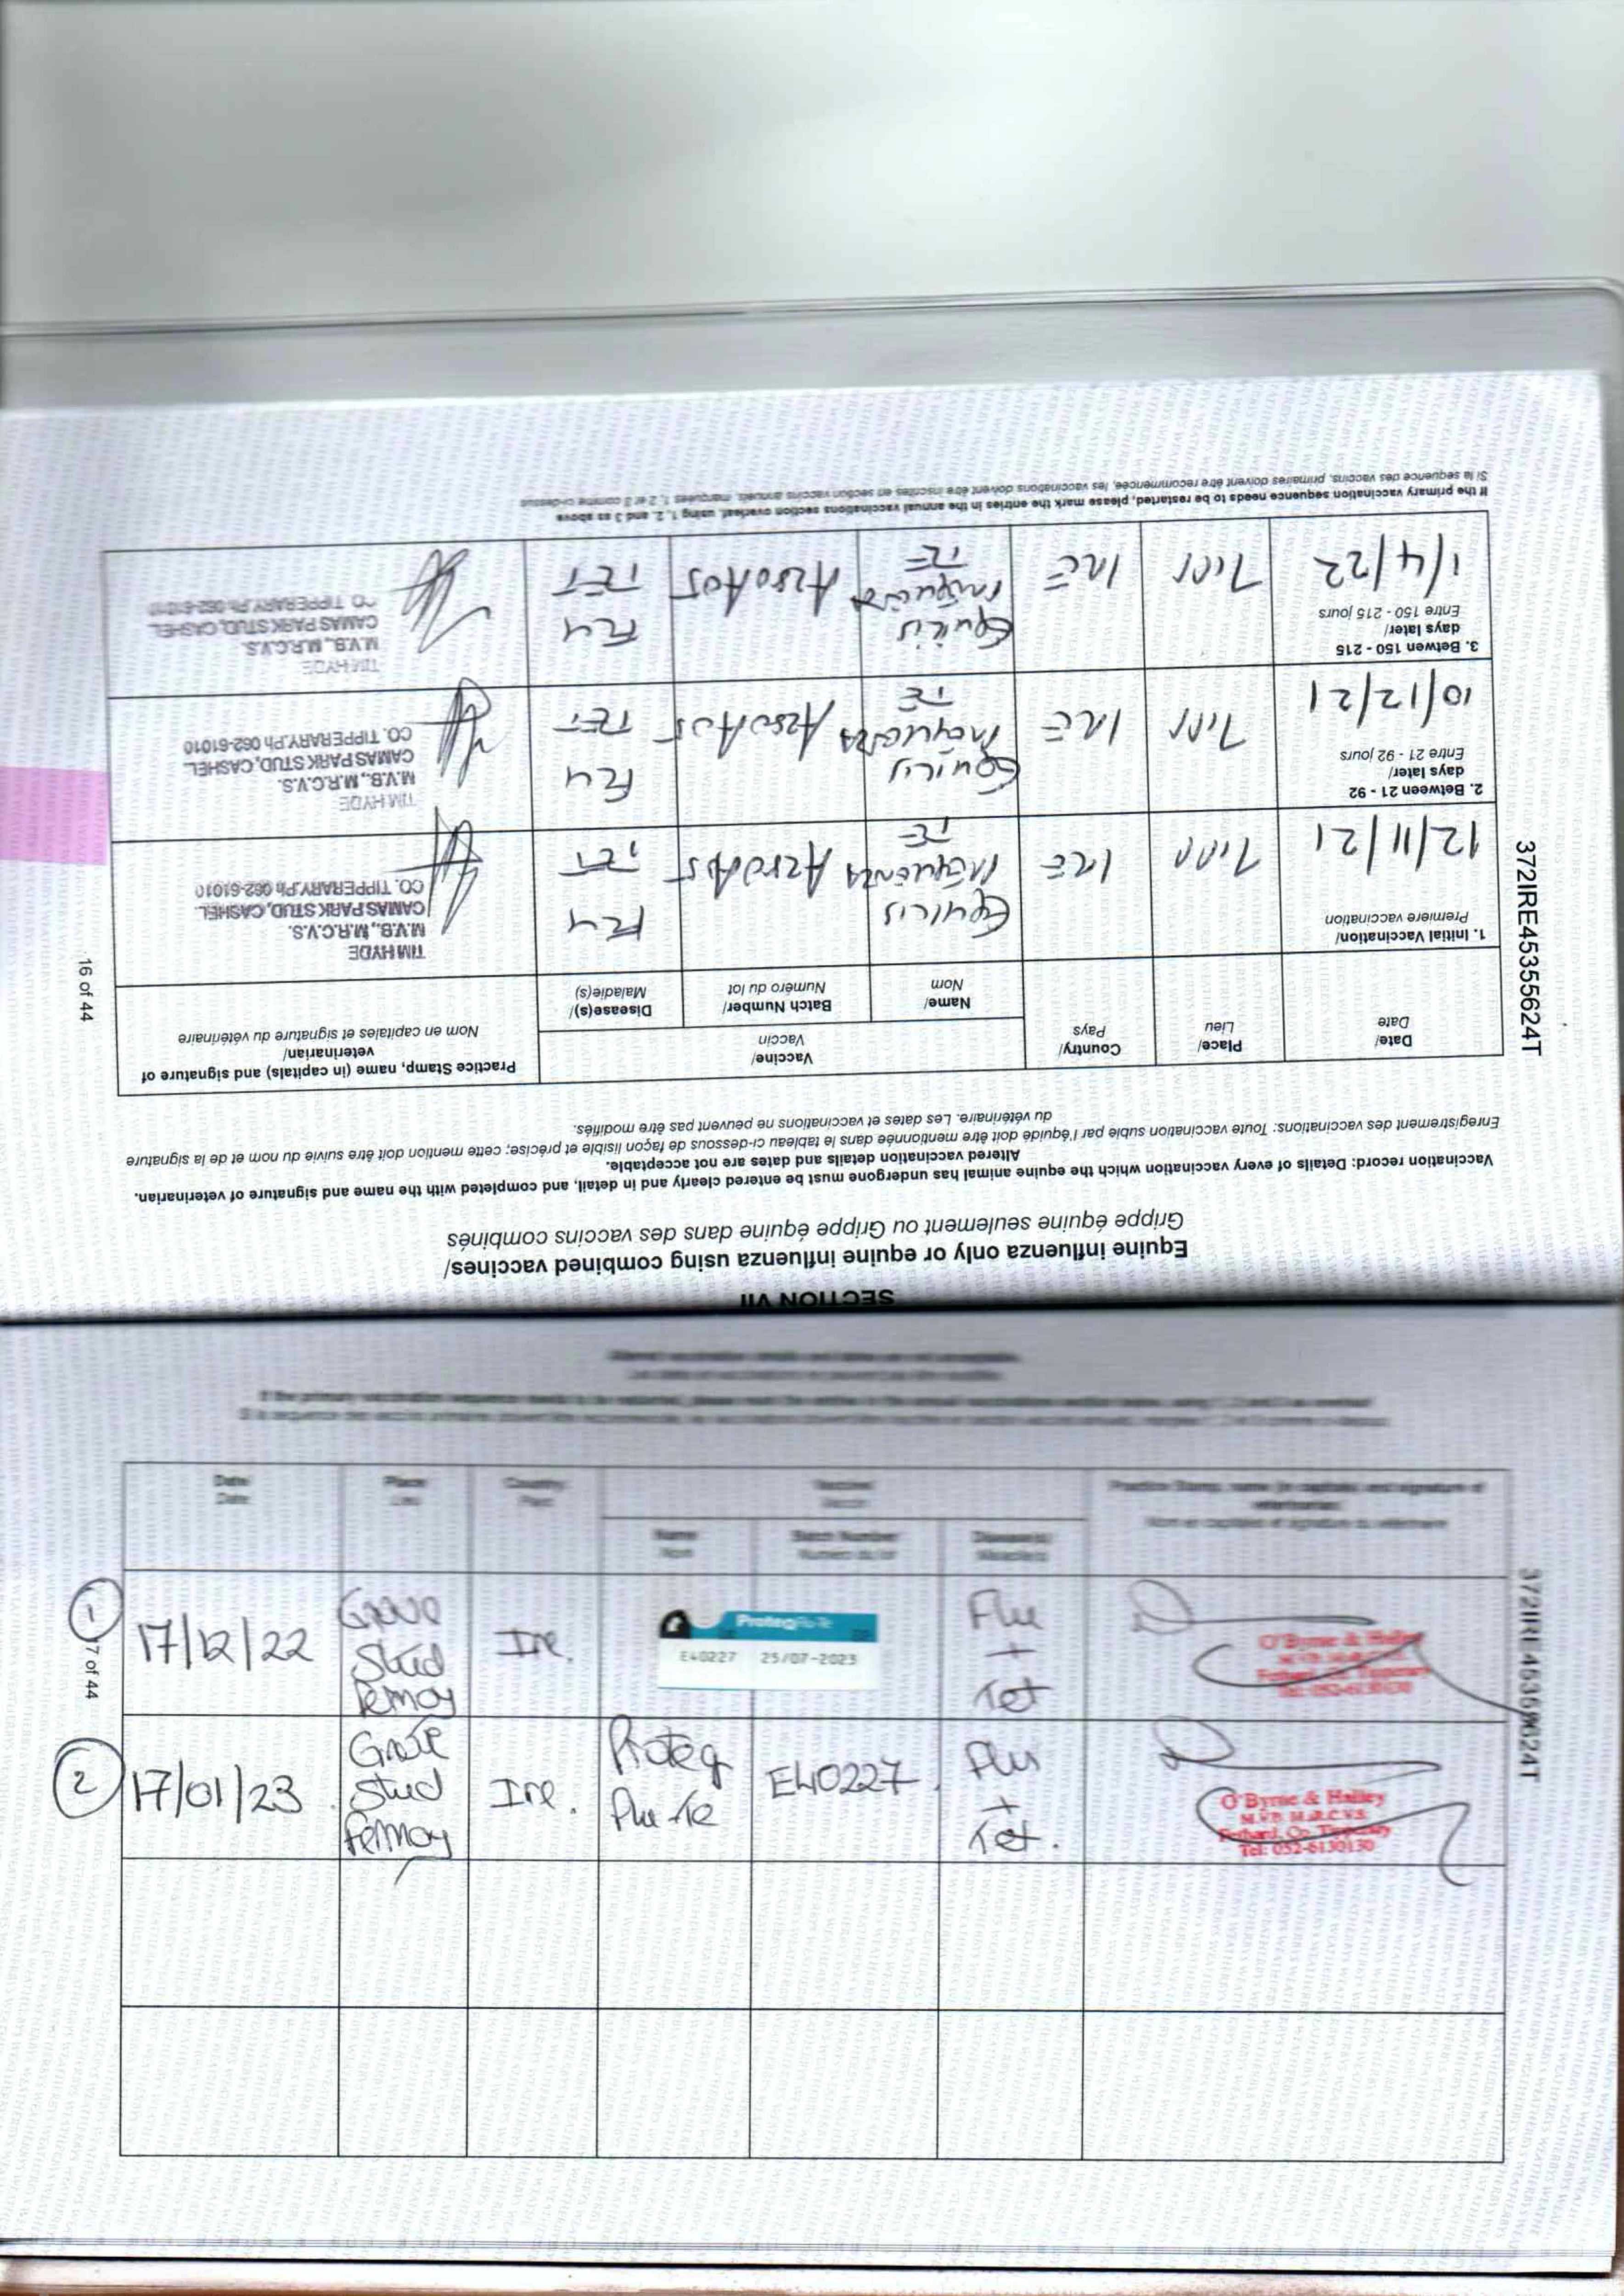 SECTION VII
Equine influenza only or equine influenza using combined vaccines/
Grippe équine seulement ou Grippe équine dans des vaccins combinés
Vaccination record: Details of every vaccination which the equine animal has undergone must be entered clearly and in detail, and completed with the name and signature of veterinarian.
Altered vaccination details and dates are not acceptable.
Enregistrement des vaccinations: Toute vaccination subie par l'équidé doit être mentionnée dans le tableau ci-dessous de façon lisible et précise; cette mention doit être suivie du nom et de la signature
du vétérinaire. Les dates et vaccinations ne peuvent pas être modifiés.
Date/
Date
Place/
Lieu
Country/
Pays
Vaccine/
Vaccin
Name/
Nom
Batch Number/
Numéro du lot
Disease(s)/
Maladie(s)
Practice Stamp, name (in capitals) and signature of
veterinarian/
Nom en capitales et signature du vétérinaire
1. Initial Vaccination/
Première vaccination
12/11/21
TIPP
IRE
EQUILIS
PREQUENZA
TE
A280A05
FLU
TET
TIM HYDE
M.V.B., M.R.C.V.S.
CAMAS PARK STUD, CASHEL
CO. TIPPERARY. Ph 062-61010
2. Between 21 - 92
days later/
Entre 21 - 92 jours
10/12/21
TIPP
IRE
EQUILIS
PREQUENZA
TE
A280A05
FLU
TET
TIM HYDE
M.V.B., M.R.C.V.S.
CAMAS PARK STUD, CASHEL
CO. TIPPERARY. Ph 062-61010
3. Betwen 150 - 215
days later/
Entre 150 - 215 jours
1/4/22
TIPP
IRE
EQUILIS
PREQUENZA
TE
A280A05
FLU
TET
TIM HYDE
M.V.B., M.R.C.V.S.
CAMAS PARK STUD, CASHEL
CO. TIPPERARY. Ph 062-61010
If the primary vaccination sequence needs to be restarted, please mark the entries in the annual vaccinations section overleaf, using 1, 2, and 3 as above
Si la sequence des vaccins, primaires doivent être recommencée, les vaccinations doivent être inscrites en section vaccins annuels, marquées 1, 2 et 3 comme ci-dessus
372IRE45355624T
16 of 44
Altered vaccination details and dates are not acceptable.
If the primary vaccination sequence needs to be restarted, please mark the entries in the annual vaccinations section below, using 1, 2 and 3 as overleaf
Date
Date
Place
Lieu
Country
Pays
Vaccine
Vaccin
Name
Nom
Batch Number
Numéro du lot
Disease(s)
Maladie(s)
Practice Stamp, name (in capitals) and signature of
veterinarian
Nom en capitales et signature du vétérinaire
1
17/12/22
Grove
Stud
Fermoy
Ire.
ProteqFlu-Te
E40227 25/07-2023
Flu
+
Tet
O'Byrne & Halley
M.V.B. M.R.C.V.S.
Fethard, Co. Tipperary
Tel: 052-6130130
2
17/01/23
Grove
Stud
Fermoy
Ire.
Proteq
Flu-Te
E40227.
Flu
+
Tet.
O'Byrne & Halley
M.V.B. M.R.C.V.S.
Fethard, Co. Tipperary
Tel: 052-6130130
17 of 44